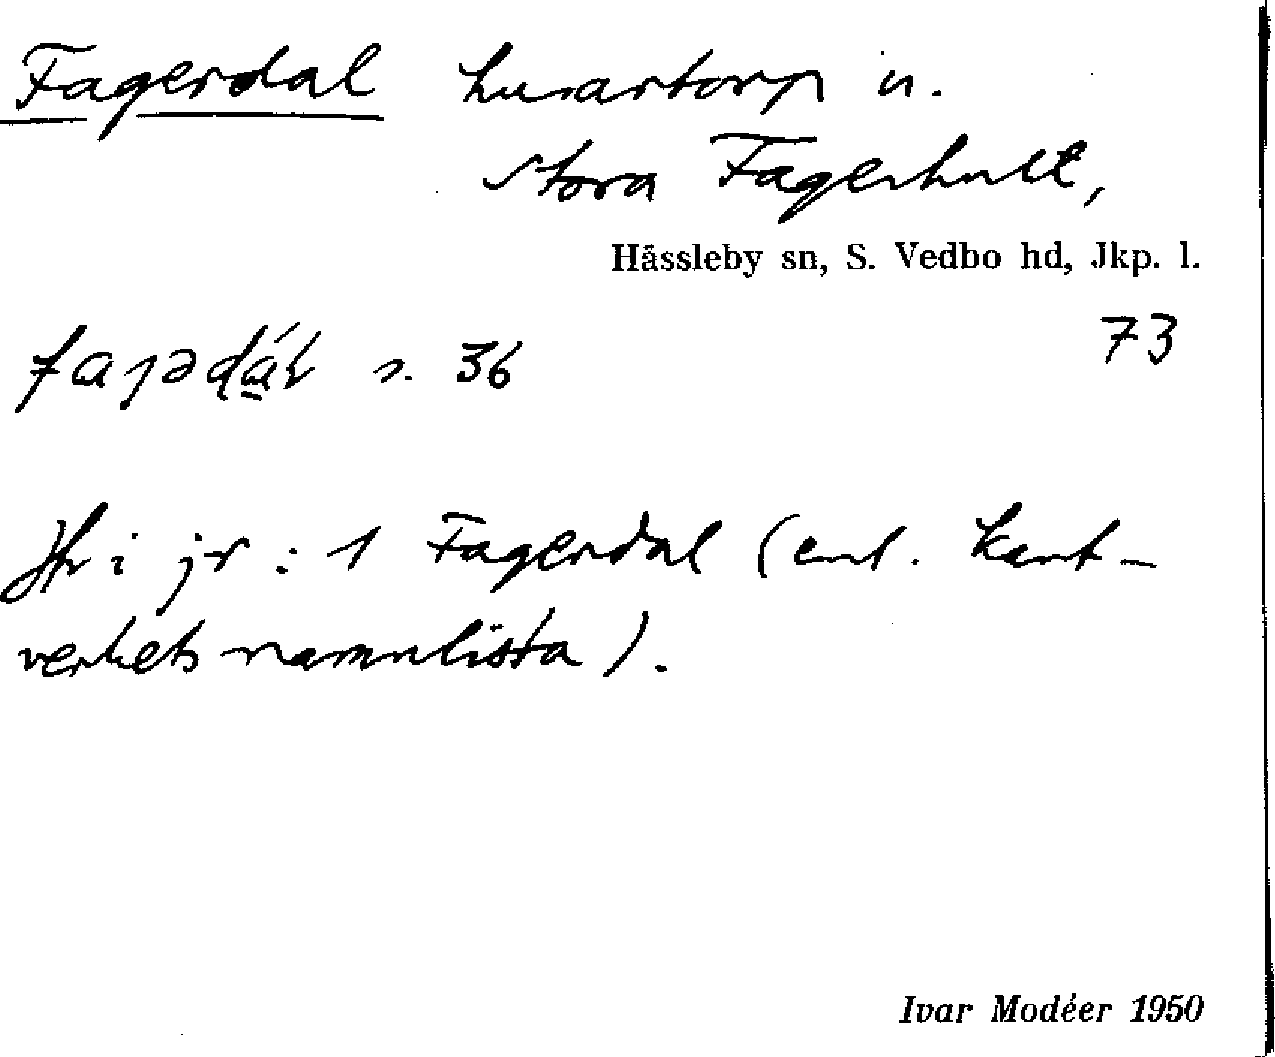 Fagerdal husartorp u.
Stora Fagerhult,
Hässleby sn, S. Vedbo hd, Jkp. l.
73
s. 36
i jr : 1 Fagerdal (enl. Kart-
verkets namnlista).
Ivar Modéer 1950